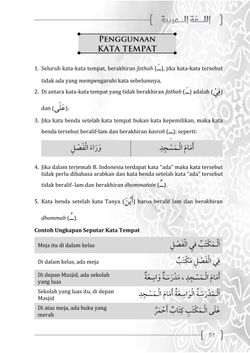 اللغة العربية
PENGGUNAAN
KATA TEMPAT
1. Seluruh kata-kata tempat, berakhiran fathah (ـَ), jika kata-kata tersebut
tidak ada yang mempengaruhi kata sebelumnya.
2. Di antara kata-kata tempat yang tidak berakhiran fathah (ـَ) adalah (فِيْ)
dan (عَلَى).
3. Jika kata benda setelah kata tempat bukan kata kepemilikan, maka kata
benda tersebut beralif-lam dan berakhiran kasroh (ـِ); seperti:
أَمَامَ الْمَسْجِدِ وَرَاءَ الْفَصْلِ
4. Jika dalam terjemah B. Indonesia terdapat kata "ada" maka kata tersebut
tidak perlu dibahasa arabkan dan kata benda setelah kata "ada" tersebut
tidak beralif- lam dan berakhiran dhommatain (ـٌ).
5. Kata benda setelah kata Tanya (أَيْنَ) harus beralif lam dan berakhiran
dhommah (ـُ).
Contoh Ungkapan Seputar Kata Tempat
Meja itu di dalam kelas اَلْمَكْتَبُ فِي الْفَصْلِ
Di dalam kelas, ada meja فِي الْفَصْلِ مَكْتَبٌ
Di depan Masjid, ada sekolah أَمَامَ الْمَسْجِدِ، مَدْرَسَةٌ وَاسِعَةٌ
yang luas
Sekolah yang luas itu, di depan اَلْمَدْرَسَةُ الْوَاسِعَةُ أَمَامَ الْمَسْجِدِ
Masjid
Di atas meja, ada buku yang عَلَى الْمَكْتَبِ كِتَابٌ أَحْمَرُ
merah